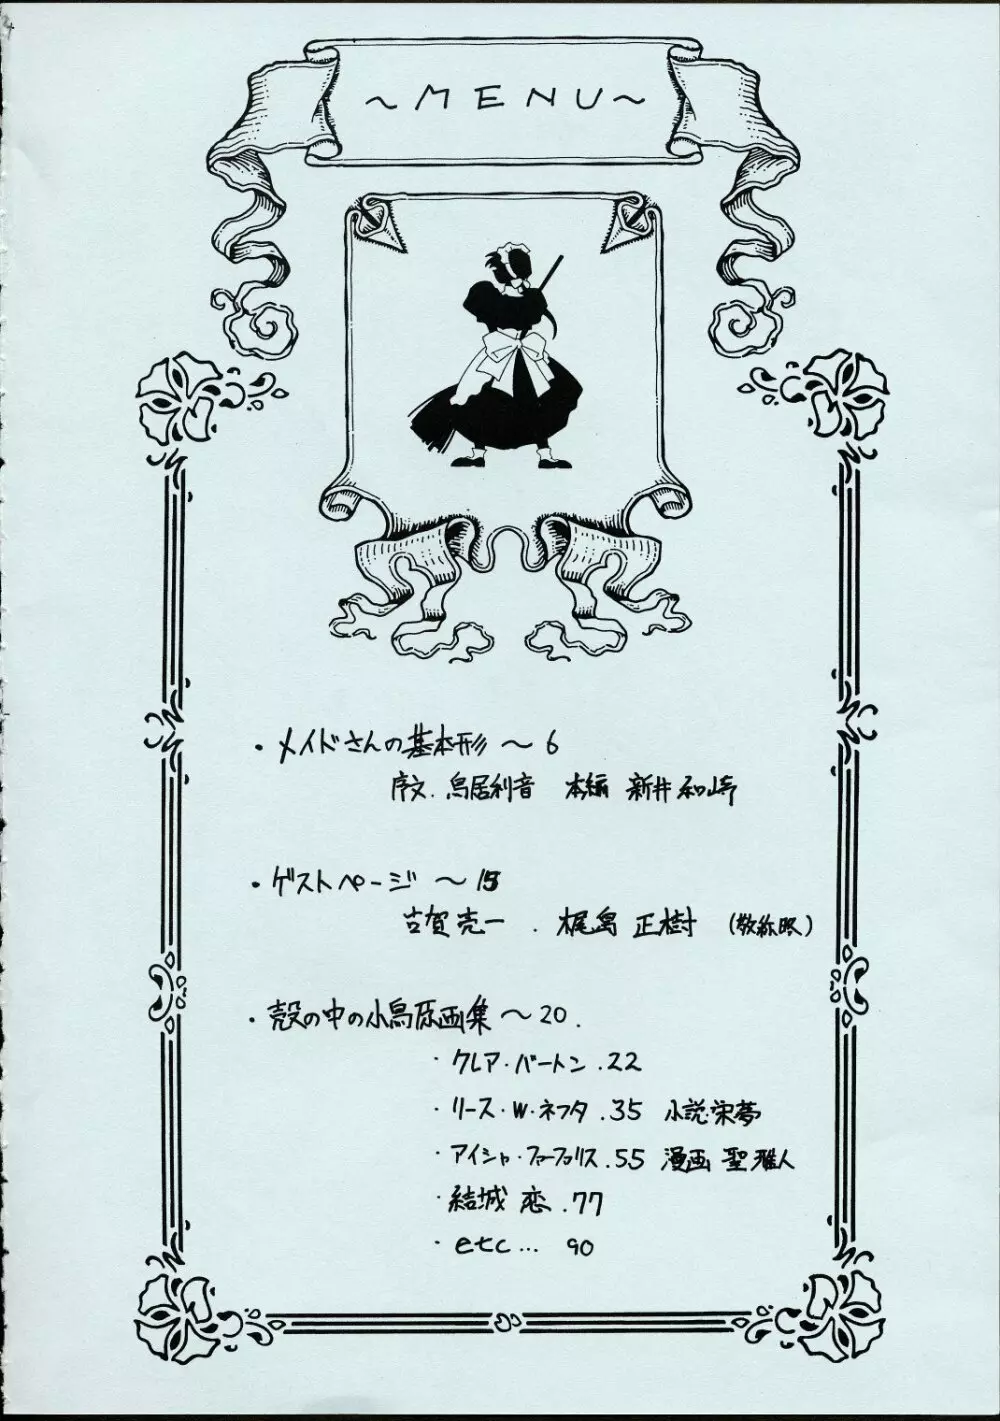 ～MENU～
・メイドさんの基本形 ～ 6
序文．鳥居利音 本編 新井和崎
・ゲストページ ～ 15
古賀亮一 ． 梶島 正樹 (敬称略)
・殻の中の小鳥原画集 ～20．
・クレア・バートン．22
・リース・W・ネフタ．35 小説・栄夢
・アイシャ・ファーファリス．55 漫画 聖 雅人
・結城 恋．77
・etc… 90